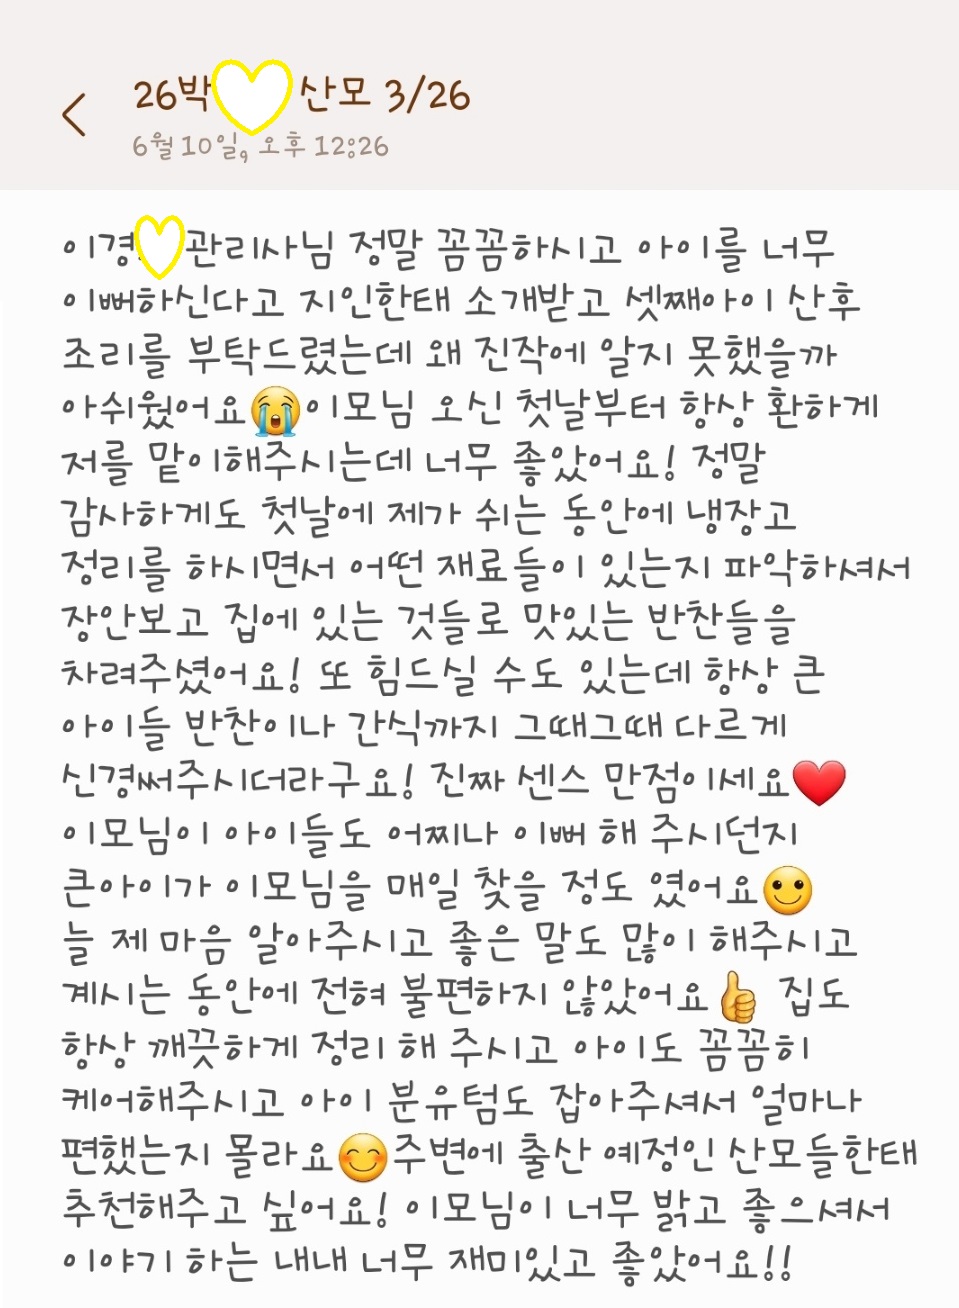 26박 산모 3/26
6월 10일, 오후 12:26
이경 관리사님 정말 꼼꼼하시고 아이를 너무
이뻐하신다고 지인한태 소개받고 셋째아이 산후
조리를 부탁드렸는데 왜 진작에 알지 못했을까
아쉬웠어요😭이모님 오신 첫날부터 항상 환하게
저를 맡이해주시는데 너무 좋았어요! 정말
감사하게도 첫날에 제가 쉬는 동안에 냉장고
정리를 하시면서 어떤 재료들이 있는지 파악하셔서
장안보고 집에 있는 것들로 맛있는 반찬들을
차려주셨어요! 또 힘드실 수도 있는데 항상 큰
아이들 반찬이나 간식까지 그때그때 다르게
신경써주시더라구요! 진짜 센스 만점이세요❤️
이모님이 아이들도 어찌나 이뻐 해 주시던지
큰아이가 이모님을 매일 찾을 정도 였어요🙂
늘 제 마음 알아주시고 좋은 말도 많이 해주시고
계시는 동안에 전혀 불편하지 않았어요👍 집도
항상 깨끗하게 정리 해 주시고 아이도 꼼꼼히
케어해주시고 아이 분유텀도 잡아주셔서 얼마나
편했는지 몰라요😊주변에 출산 예정인 산모들한태
추천해주고 싶어요! 이모님이 너무 밝고 좋으셔서
이야기 하는 내내 너무 재미있고 좋았어요!!